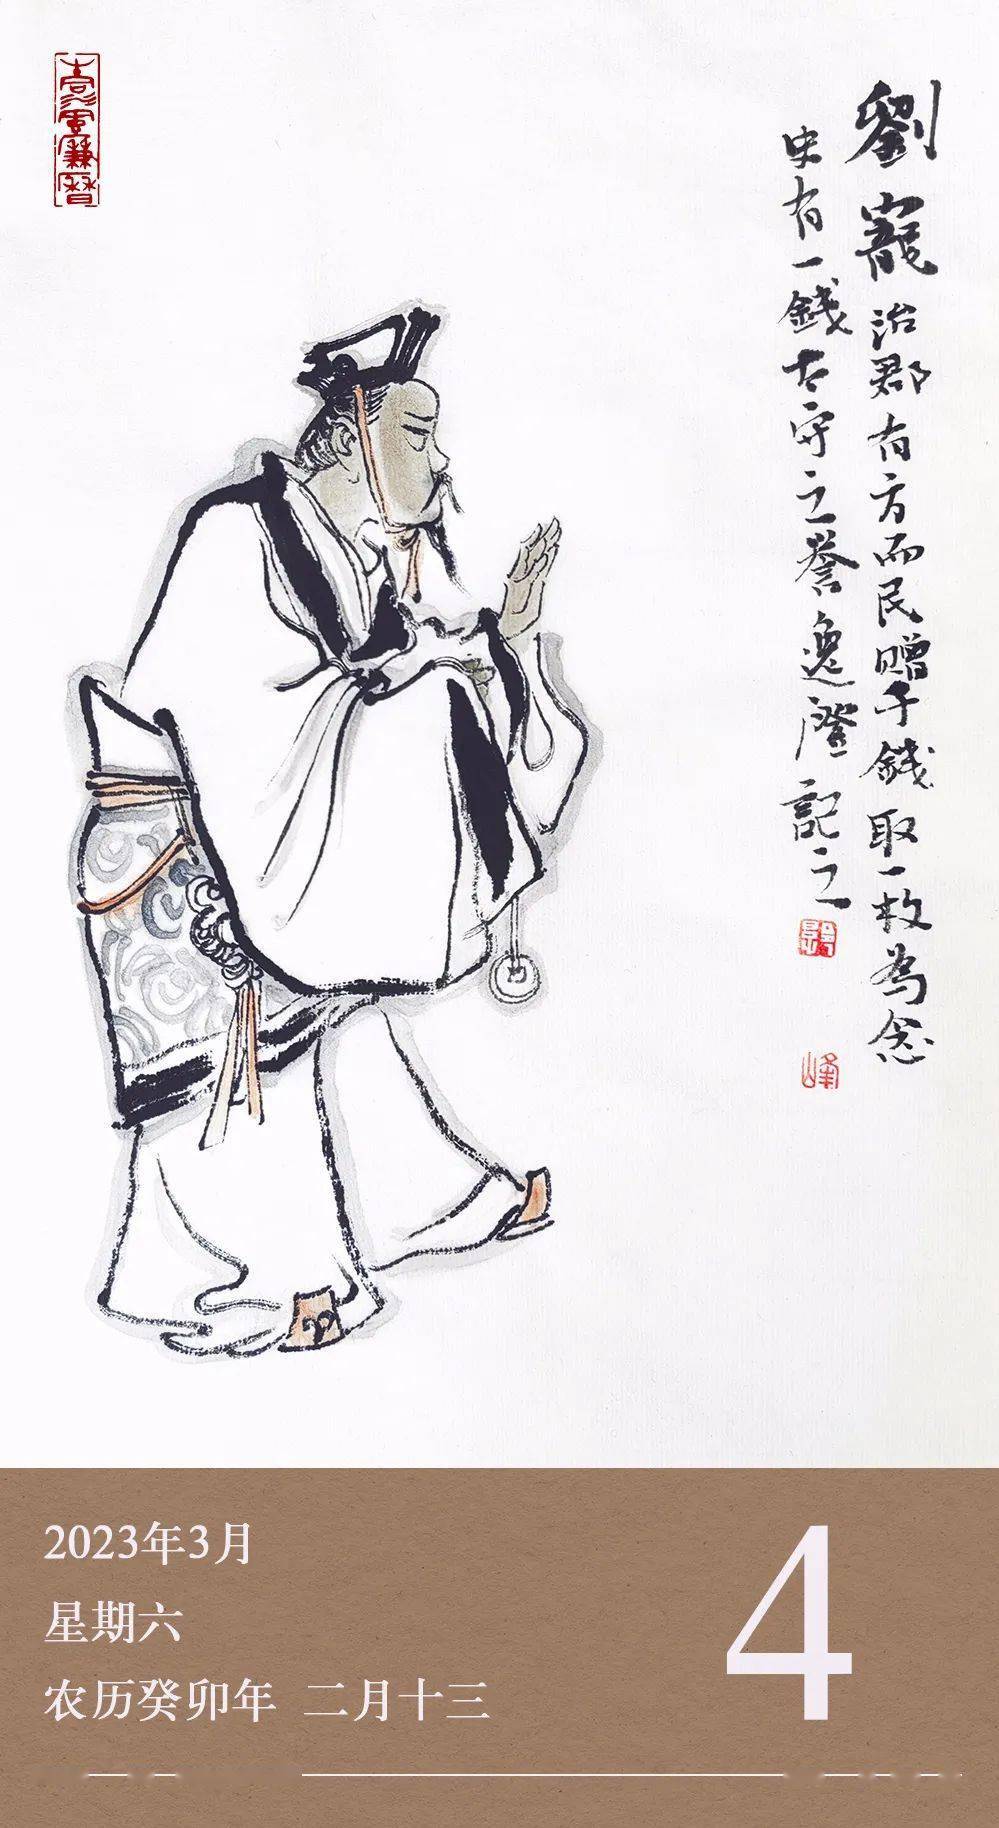 劉寵治郡有方而民贈千錢取一枚為念
史有一錢太守之譽逸塵記之
峰
2023年3月
星期六
农历癸卯年 二月十三
4